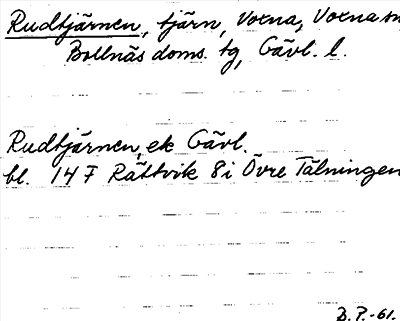 Rudtjärnen, tjärn, Voxna, Voxna sn
Bollnäs doms. tg, Gävl. l.
Rudtjärnen, ek Gävl.
bl. 14 F Rättvik 8 i Övre Tälningen
B. P. -61.